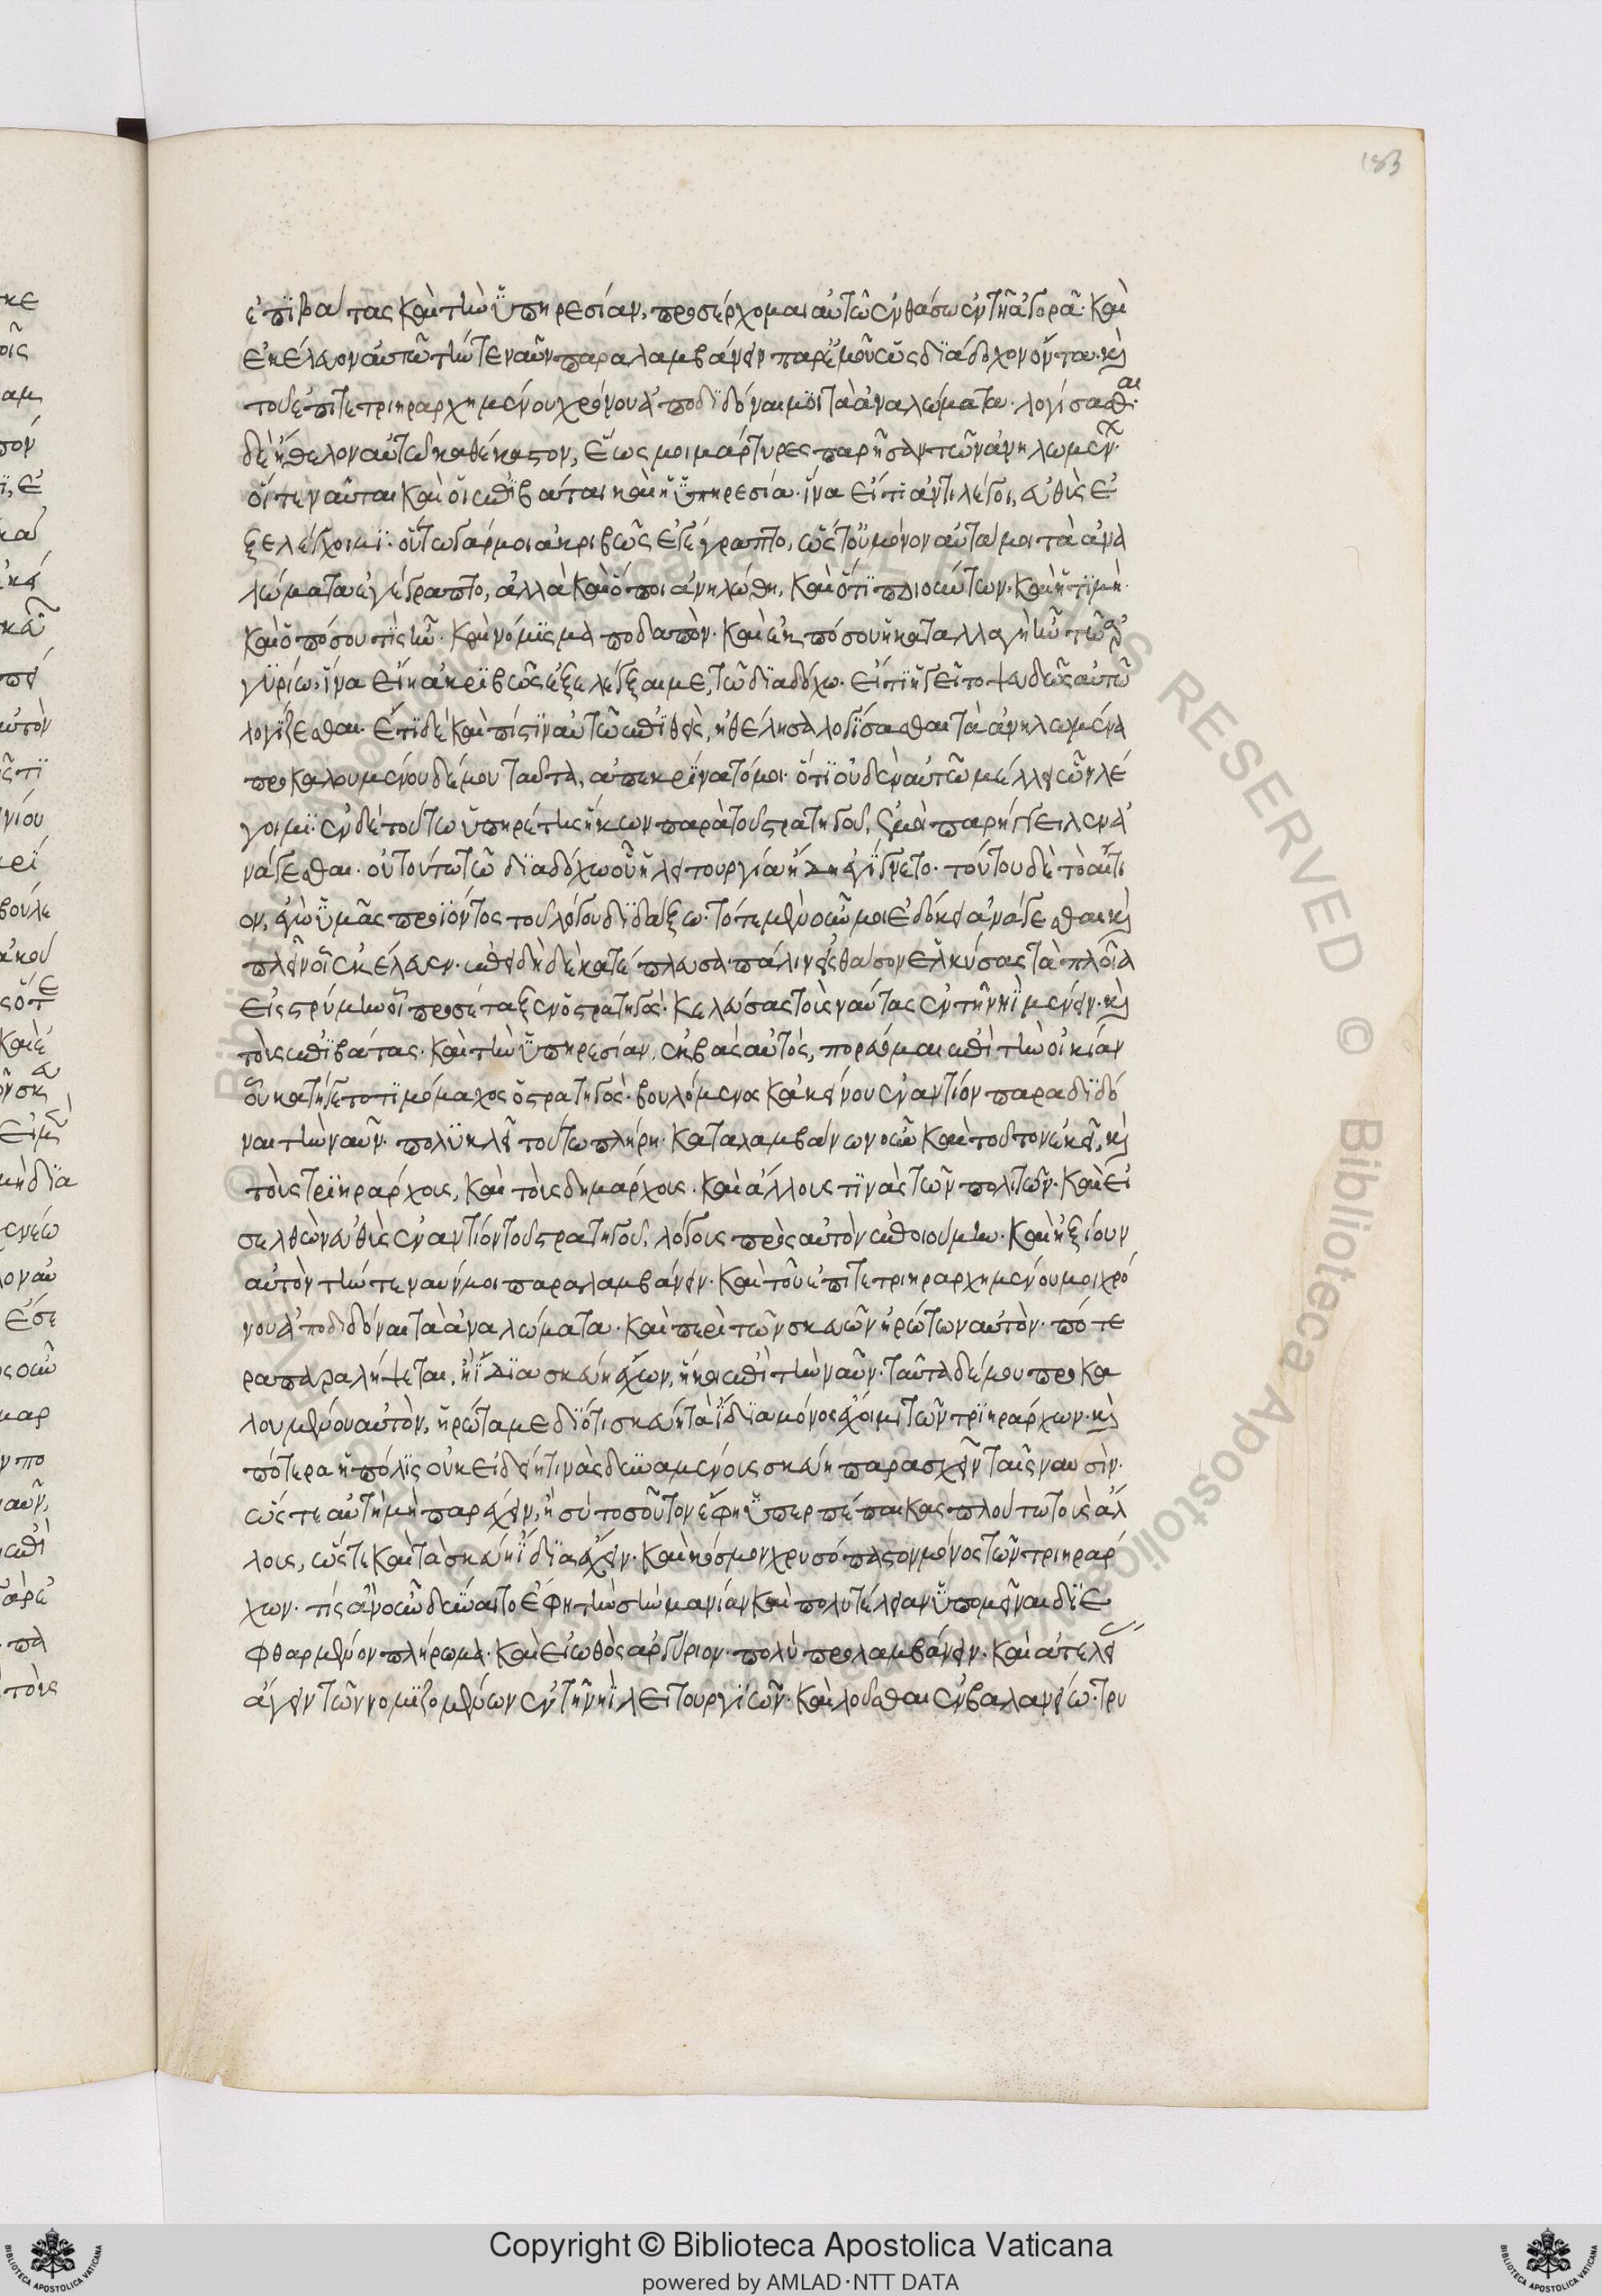 ἐπϊβάτας καὶ τὴν ὑπηρεσίαν, προσέρχομαι αὐτῶ ἐν θάσω ἐν τῆ ἀγορᾶ· καὶ
ἐκέλευον αὐτῶ τήν τε ναῦν παραλαμβάνειν παρ' ἐμοῦ ὡς διάδοχον ὄντα· κ(αὶ)
τοῦ ἐπιτετριηραρχημένου χρόνου ἀποδϊδόναι μοϊ τὰ ἀναλώματα· λογίσασθαι·
δὲ ἤθελον αὐτῶ καθέκαστον, ἕως μοι μάρτυρες παρῆσαν τῶν ἀνηλωμένων·
οἵ τε ναῦται καὶ οἱ ἐπϊβάται καὶ ἡ ὑπηρεσία· ἵνα εἴ τϊ ἀντιλέγοι, εὐθὺς ἐ
ξελέγχοιμϊ· οὕτω γάρ μοι ἀκριβῶς ἐγέγραπτο, ὥστ' οὐ μόνον αὐτά μοι τὰ ἀνα
λώματα ἐγέγραπτο, ἀλλὰ καὶ ὅποι ἀνηλώθη, καὶ ὅτϊ ποιούντων· καὶ ἡ τϊμὴ·
καὶ ὁπόσου τὶς ἦν· καὶ νόμϊσμα ποδαπὸν· καὶ ἐκ πόσου ἡ καταλλαγὴ ἦν τῶ ἀρ
γϋρίω, ἵνα εἴη ἀκρϊβῶς ἐξελέγξαι με, τῶ διαδόχω· εἴ τϊ ἡγεῖτο ψευδῶς αὐτῶ
λογίζεσθαι· ἔτϊ δὲ καὶ πίστϊν αὐτῶ ἐπϊθεὶς, ἠθέλησα λογίσασθαι τὰ ἀνηλωμένα
προκαλουμένου δέ μου ταῦτα, ἀπεκρίνατό μοι· ὅτϊ οὐδὲν αὐτῶ μέλλει ὧν λέ
γοιμϊ· ἐν δὲ τούτω ὑπηρέτης ἥκων παρὰ τοῦ στρατηγοῦ, ἐμοὶ παρήγγειλεν ἀ
νάγεσθαι· οὐ τούτω τῶ διαδόχω οὗ ἡ λειτουργία ἤδη ἐγϊγνετο· τούτου δὲ τὸ αἴτι
ον, ἐγὼ ὑμᾶς προϊόντος τοῦ λόγου διδάξω· τότε μὲν οὖν μοι ἐδόκει ἀνάγεσθαι κ(αὶ)
πλεῖν οἷ ἐκέλευεν· ἐπειδὴ δὲ κατέπλευσα πάλιν εἰς θάσον ἑλκύσας τὰ πλοῖα
εἰς στρύμην οἷ προσέταξεν ὁ στρατηγὸς· κελεύσας τοὺς ναύτας ἐν τῆ νηῒ μένειν· κ(αὶ)
τοὺς ἐπϊβάτας· καὶ τὴν ὑπηρεσίαν, ἐκβὰς αὐτὸς, πορεύομαι ἐπὶ τὴν οἰκίαν
οὗ κατήγετο τϊμόμαχος ὁ στρατηγὸς· βουλόμενος κἀκείνου ἐναντίον παραδϊδό
ναι τὴν ναῦν· πολϋκλεῖ τούτω πλήρη· καταλαμβάνων οὖν καὶ τοῦτον ἐκεῖ, κ(αὶ)
τοὺς τρϊηράρχους, καὶ τοὺς δημάρχους· καὶ ἄλλους τϊνὰς τῶν πολιτῶν· καὶ εἰ
σελθὼν εὐθὺς ἐναντίον τοῦ στρατηγοῦ, λόγους πρὸς αὐτὸν ἐποιούμην· καὶ ἠξίουν
αὐτὸν τήν τε ναῦν μοι παραλαμβάνειν· καὶ τοῦ ἐπιτετριηραρχημένου μοι χρό
νου ἀποδιδόναι τὰ ἀναλώματα· καὶ περὶ τῶν σκευῶν ἠρώτων αὐτὸν· πότε
ρα παραλήψεται, ἢ ἴδια σκεύη ἔχων, ἥκοι ἐπὶ τὴν ναῦν· ταῦτα δέ μου προκα
λουμένου αὐτὸν, ἠρώτα με διότι σκεύη τὰ ἴδια μόνος ἔχοιμι τῶν τρϊηράρχων· κ(αὶ)
πότερα ἡ πόλϊς οὐκ εἰδείη τινὰς δυναμένους σκεύη παρασχεῖν ταῖς ναυσὶν·
ὥστε αὐτὴ μὴ παρέχειν, ἢ σὺ τοσοῦτον ἔφη ὑπερπέπαικας πλούτω τοὺς ἄλ
λους, ὥστε καὶ τὰ σκεύη ἴδια ἔχειν· καὶ κόσμον χρυσόπαστον μόνος τῶν τριηράρ
χων· τίς ἂν οὖν δύναιτο ἔφη τὴν σὴν μανίαν καὶ πολυτέλειαν ὑπομεῖναι διε
φθαρμένον πλήρωμα· καὶ εἰωθὸς ἀργύριον· πολὺ προλαμβάνειν· καὶ ἀτελεί
ἄγειν τῶν νομϊζομένων ἐν τῆ νηῒ λειτουργϊῶν· καὶ λοῦσθαι ἐν βαλανείω· τρυ